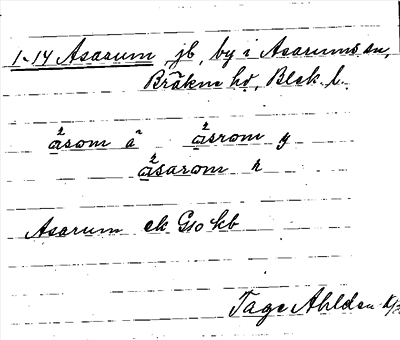 1-14 Asarum, jb, by i Asarums sn,
Bräkne hd, Blek. l.
åsom ä åsrom y
åsarom n
Asarum ek G10 kb
Tage Ahldén